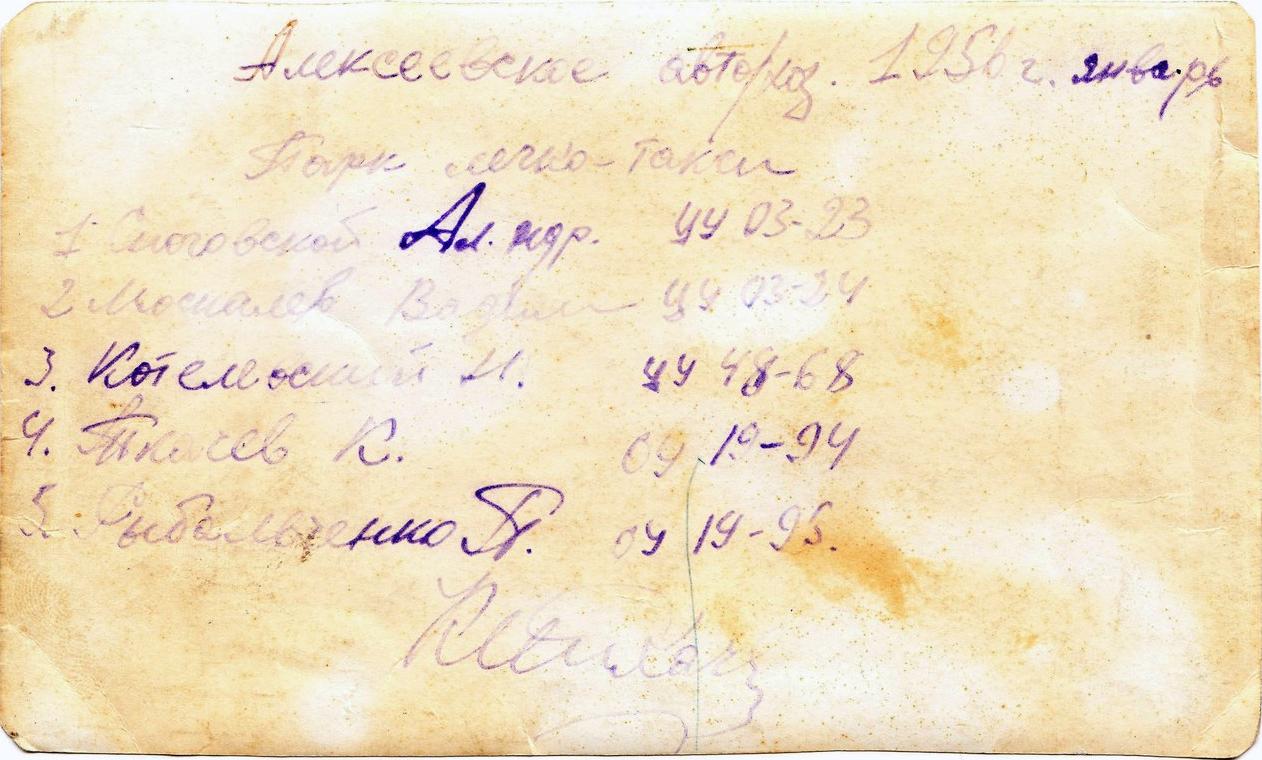 Алексеевское автохоз. 1956 г. январь
Парк легко-такси
1 Ал. ндр. ЦУ 03-23
2 Москалев Вадим ЦУ 03-24
3. Н. ЦУ 48-68
4. Ткачев К. 09 19-94
5. Рыбальченко П. 04 19-95.